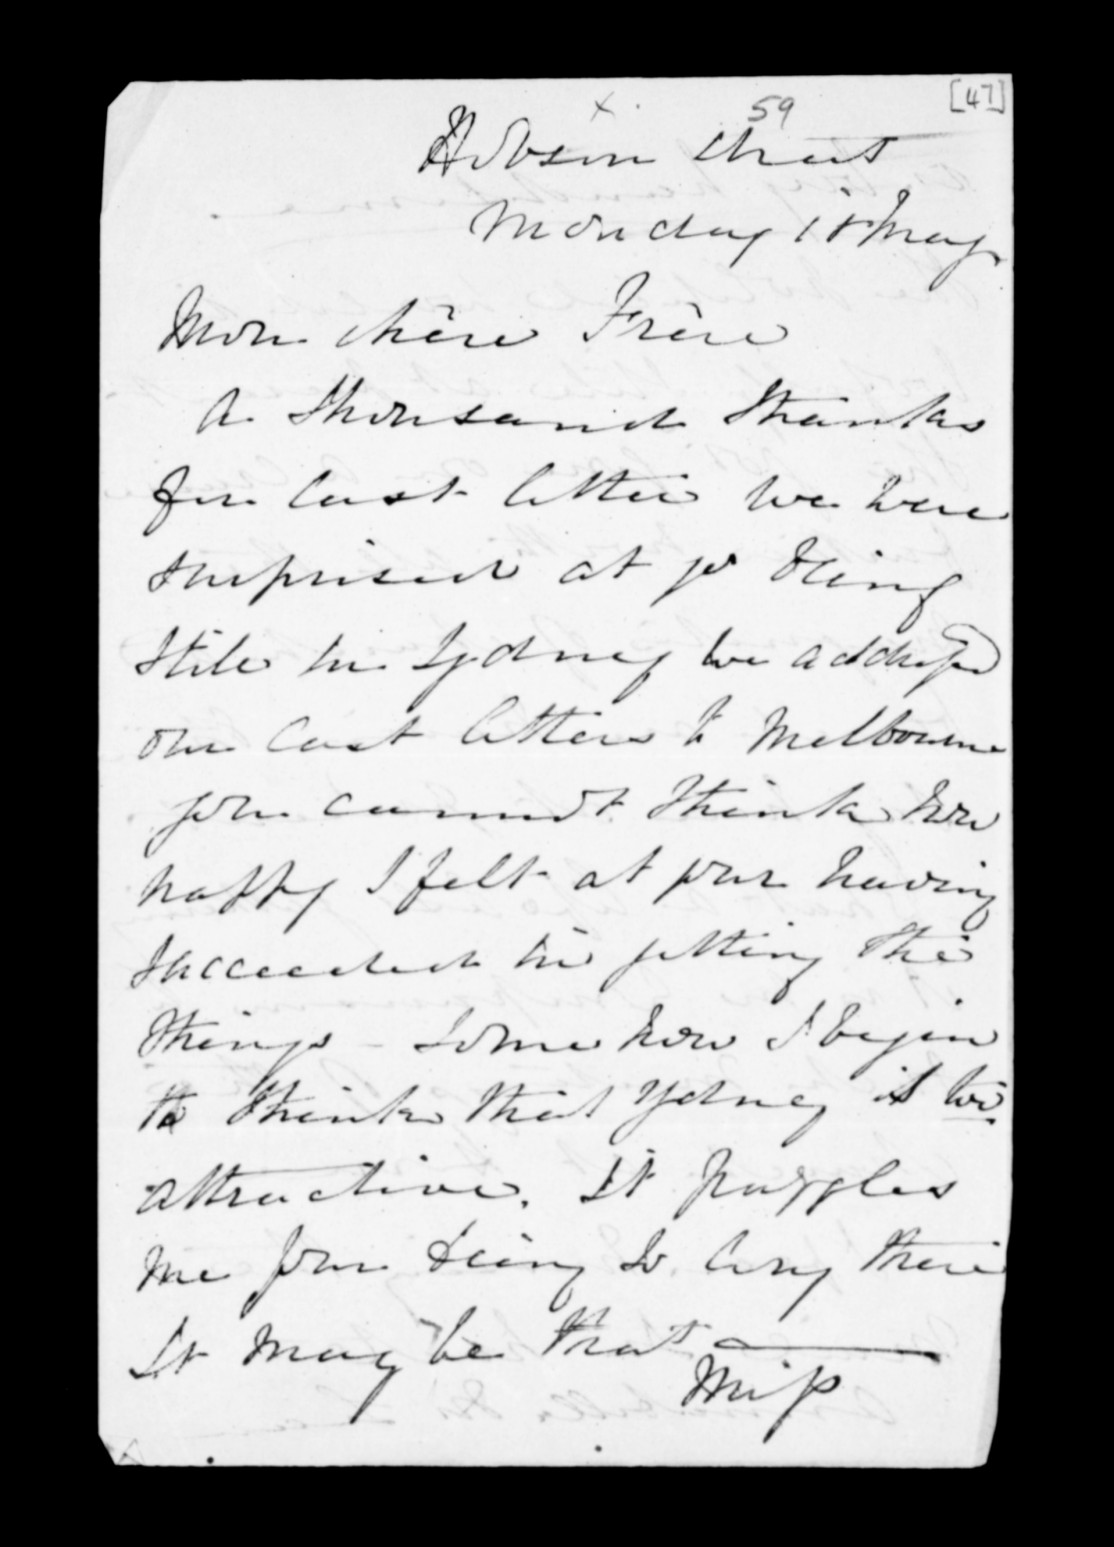 [47]
x 59
Hobson Street
Monday 18 May
Mon chère Frère
A thousand thanks
for last letter we were
surprised at yr being
still in Sydney we addressed
our last letters to Melbourne
you cannot think how
happy I felt at your having
succeeded in getting the
things - some how I begin
to think that Sydney is too
attractive. It puzzles
me your being so long there
It may be that
Miss